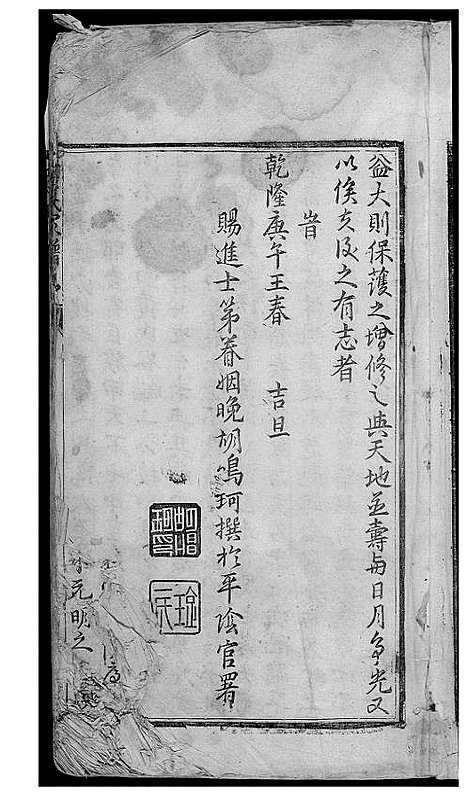 益大則保護之增修之與天地並壽與日月争光又
以俟夫後之有志者
旹
乾隆庚午王春　吉旦
賜進士第眷姻晚胡鳴珂撰於平陰官署
胡鳴珂印
元明之